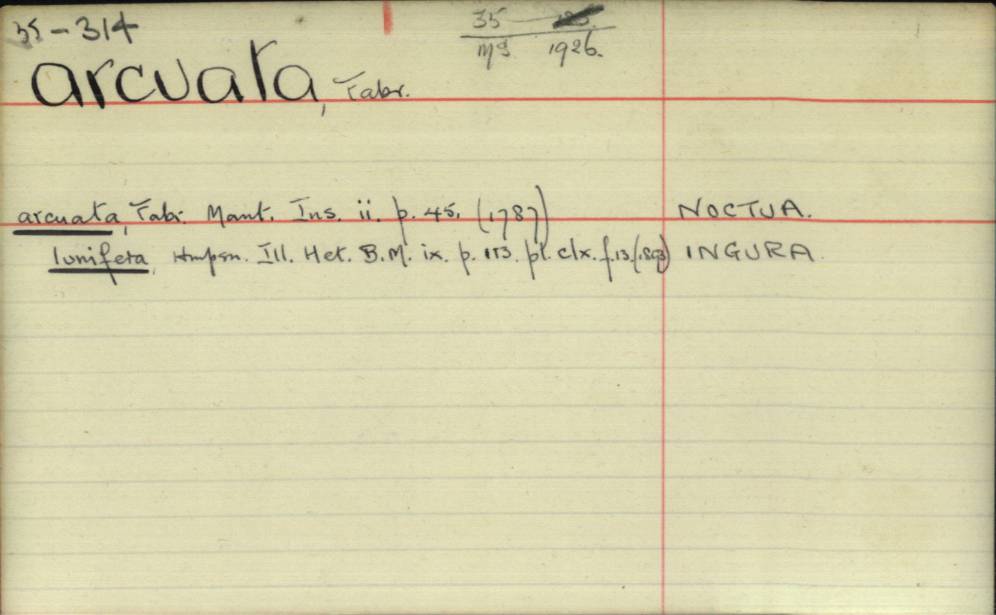 35-314
35
M9 1926.
arcuata, Fabr.
arcuata, Fabr. Mant. Ins. ii. p. 45, (1787) NOCTUA.
lunifera, Hmpsn. Ill. Het. B.M. ix. p. 113. pl. clx. f. 13. (1893) INGURA.